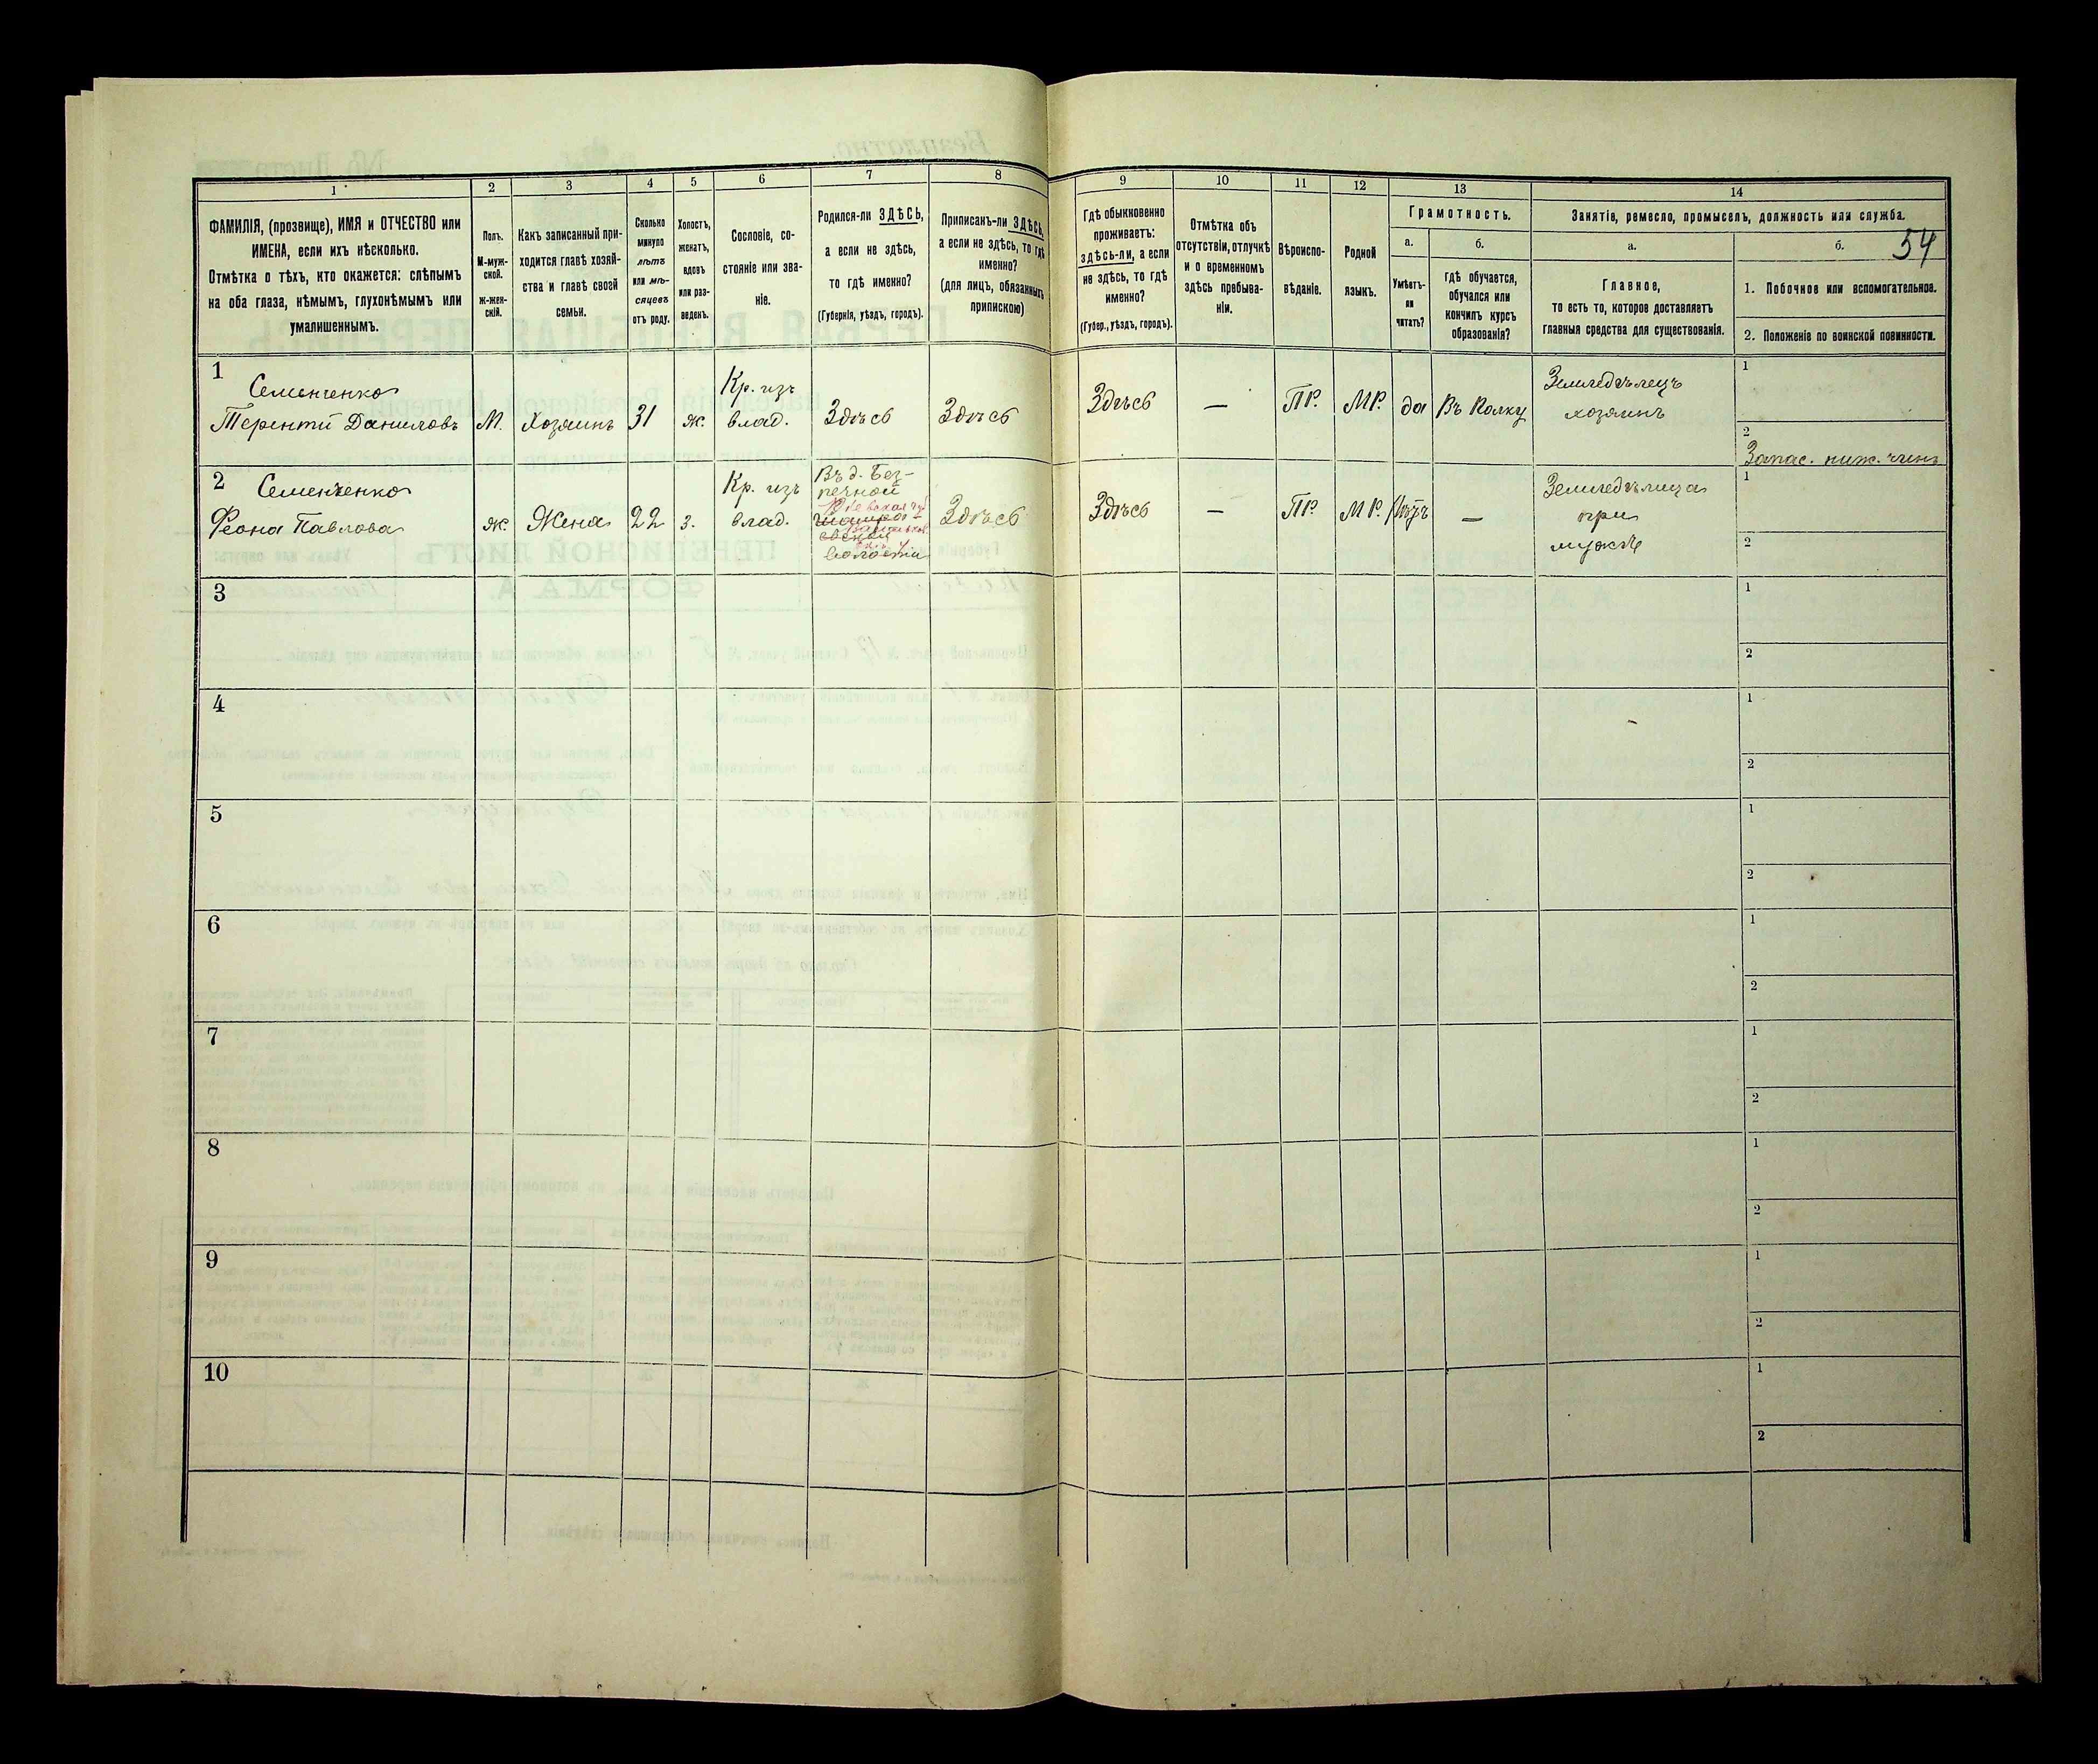 54
1 2 3 4 5 6 7 8 9 10 11 12 13 14
ФАМИЛІЯ, (прозвище), ИМЯ и ОТЧЕСТВО или
ИМЕНА, если ихъ нѣсколько.
Отмѣтка о тѣхъ, кто окажется: слѣпымъ
на оба глаза, нѣмымъ, глухонѣмымъ или
умалишеннымъ.
Полъ.
М-муж-
ской.
Ж-жен-
скій.
Какъ записанный при-
ходится главѣ хозяй-
ства и главѣ своей
семьи.
Сколько
минуло
лѣтъ
или мѣ-
сяцевъ
отъ роду.
Холостъ,
женатъ,
вдовъ
или раз-
веденъ.
Сословіе, со-
стояніе или зва-
ніе.
Родился-ли ЗДѢСЬ,
а если не здѣсь,
то гдѣ именно?
(Губернія, уѣздъ, городъ).
Приписанъ-ли ЗДѢСЬ,
а если не здѣсь, то гдѣ
именно?
(для лицъ, обязанныхъ
припискою)
Гдѣ обыкновенно
проживаетъ:
здѣсь-ли, а если
не здѣсь, то гдѣ
именно?
(Губер., уѣздъ, городъ).
Отмѣтка объ
отсутствіи, отлучкѣ
и о временномъ
здѣсь пребыва-
ніи.
Вѣроиспо-
вѣданіе.
Родной
языкъ.
Грамотность.
а.
Умѣетъ-
ли
читать?
б.
гдѣ обучается,
обучался или
кончилъ курсъ
образованія?
Занятіе, ремесло, промыселъ, должность или служба.
а.
Главное,
то есть то, которое доставляетъ
главныя средства для существованія.
б.
1. Побочное или вспомогательное.
2. Положеніе по воинской повинности.
1
Семенченко
Терентій Даниловъ
М.
Хозяинъ
31
ж.
Кр. изъ
влад.
Здѣсь
Здѣсь
Здѣсь
—
ПР.
МР.
да
Въ Полку
Земледѣлецъ
хозяинъ
1
2
Запас. ниж. чинъ
2
Семенченко
Феона Павлова
ж.
Жена
22
з.
Кр. изъ
влад.
Въ д. Без-
печной
Кіевская губ
волости
Здѣсь
Здѣсь
—
ПР.
МР.
нѣтъ
—
Земледѣлица
при
мужѣ
1
2
3
1
2
4
1
2
5
1
2
6
1
2
7
1
2
8
1
2
9
1
2
10
1
2